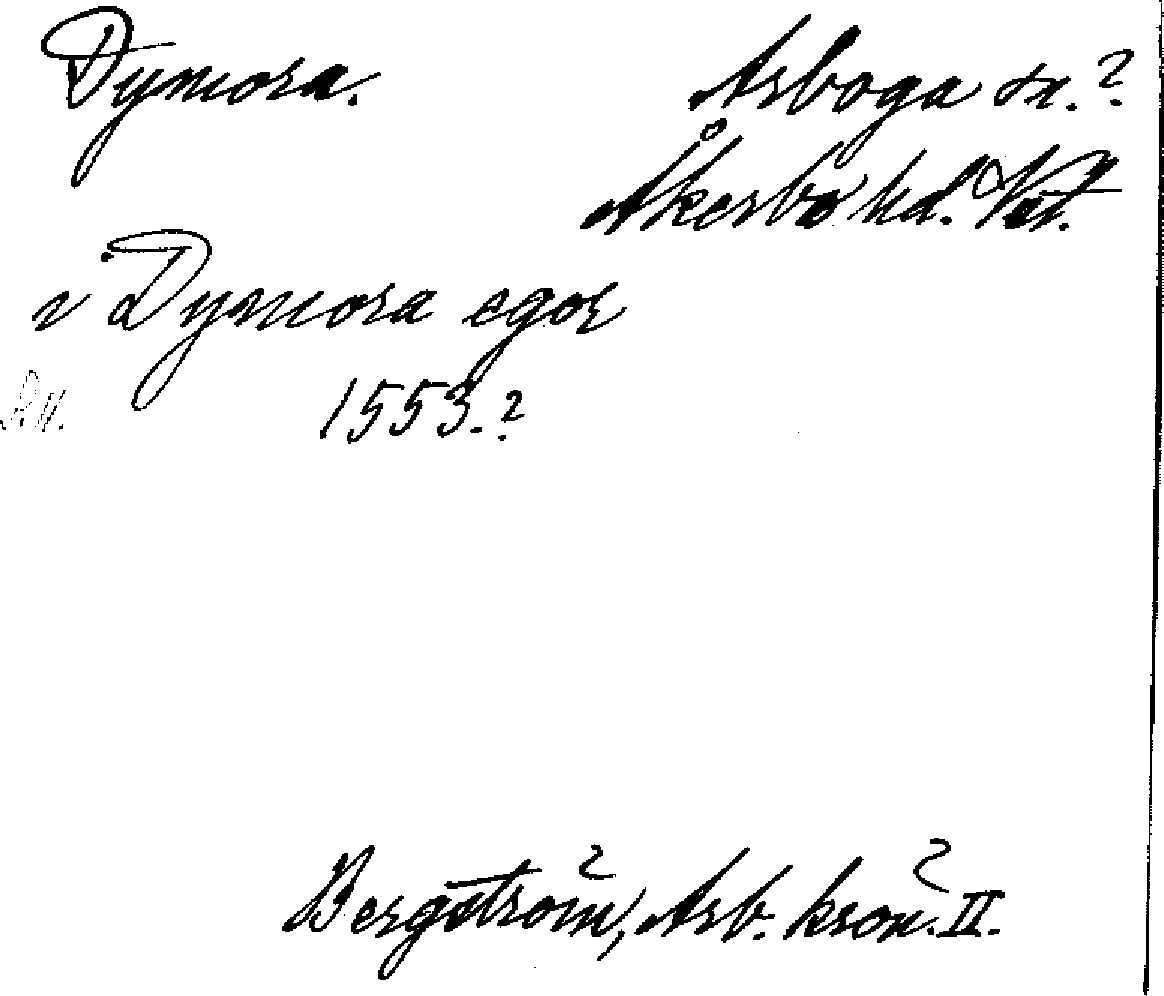 Dymora.
Arboga sn.?
Åkerbo hd. Vstl.
i Dymora egor
1553.?
Bergström, Arb. krön. II.